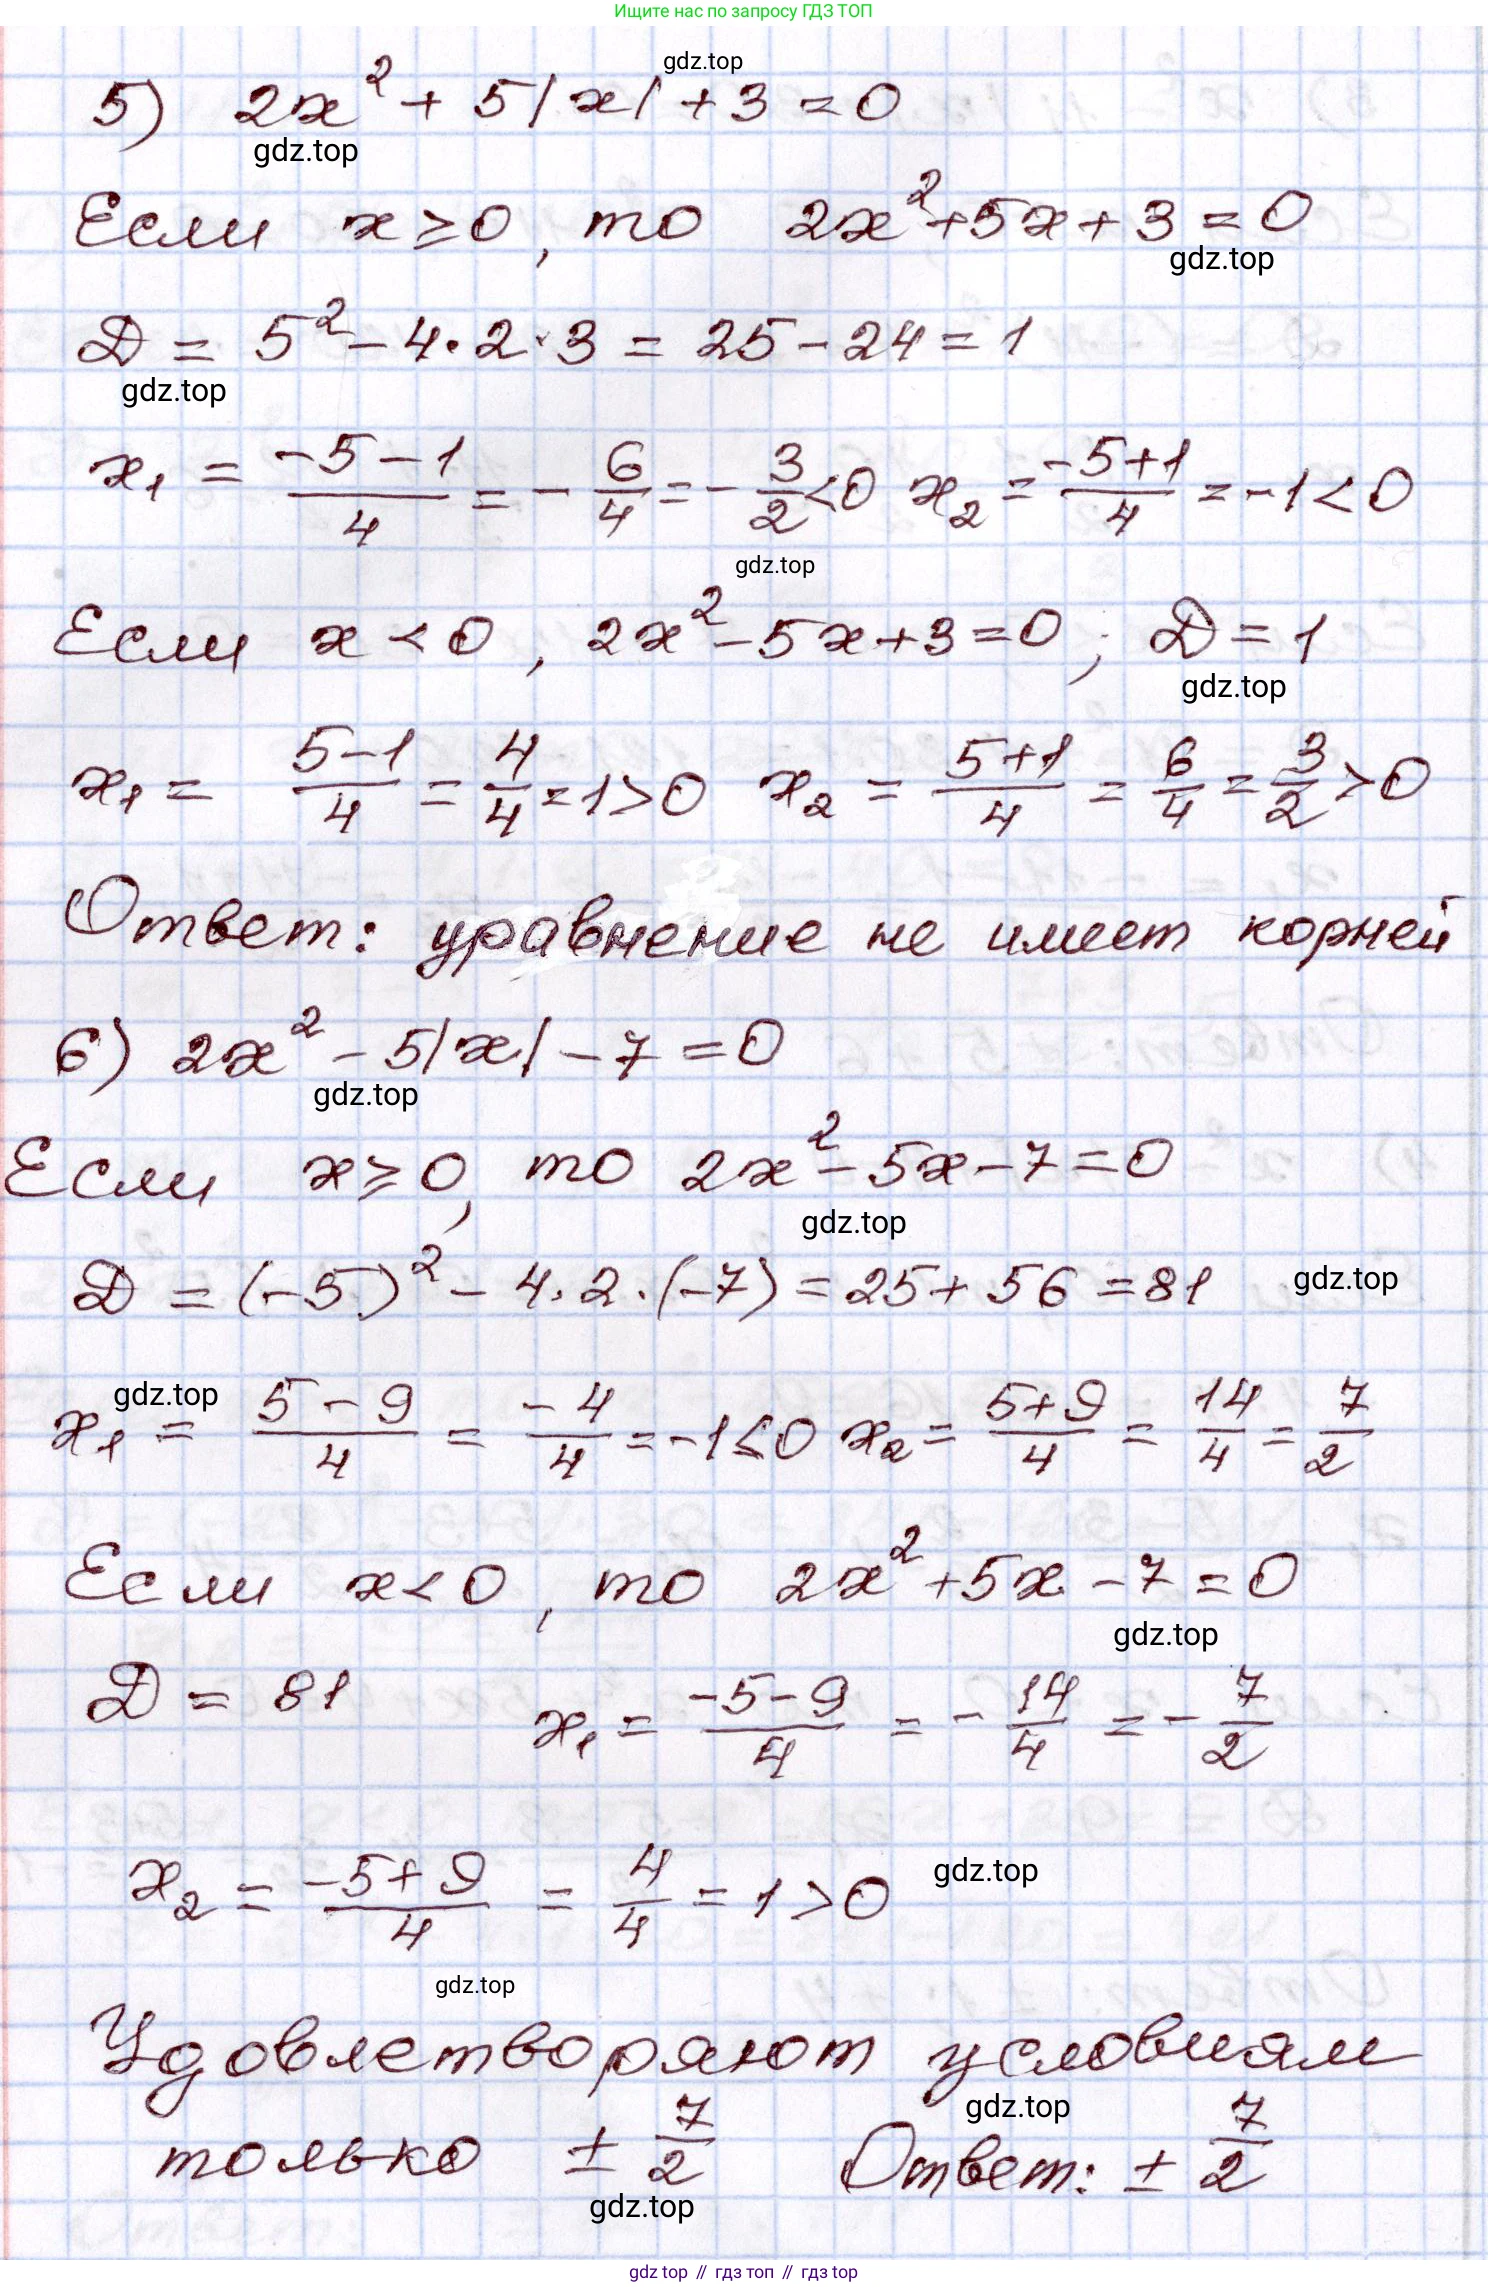 Ищите нас по запросу ГДЗ ТОП
gdz.top
5) 2x² + 5|x| + 3 = 0
gdz.top
Если x ≥ 0, то 2x² + 5x + 3 = 0
gdz.top
D = 5² - 4·2·3 = 25 - 24 = 1
gdz.top
x₁ = (-5-1)/4 = -6/4 = -3/2 < 0 x₂ = (-5+1)/4 = -1 < 0
gdz.top
Если x < 0, 2x² - 5x + 3 = 0; D = 1
gdz.top
x₁ = (5-1)/4 = 4/4 = 1 > 0 x₂ = (5+1)/4 = 6/4 = 3/2 > 0
Ответ: уравнение не имеет корней
6) 2x² - 5|x| - 7 = 0
gdz.top
Если x ≥ 0, то 2x² - 5x - 7 = 0
gdz.top
D = (-5)² - 4·2·(-7) = 25 + 56 = 81
gdz.top
gdz.top
x₁ = (5-9)/4 = -4/4 = -1 ≤ 0 x₂ = (5+9)/4 = 14/4 = 7/2
Если x < 0, то 2x² + 5x - 7 = 0
gdz.top
D = 81 x₁ = (-5-9)/4 = -14/4 = -7/2
x₂ = (-5+9)/4 = 4/4 = 1 > 0
gdz.top
gdz.top
Удовлетворяют условиям
gdz.top
только ± 7/2 Ответ: ± 7/2
gdz.top
gdz top // гдз топ // гдз top